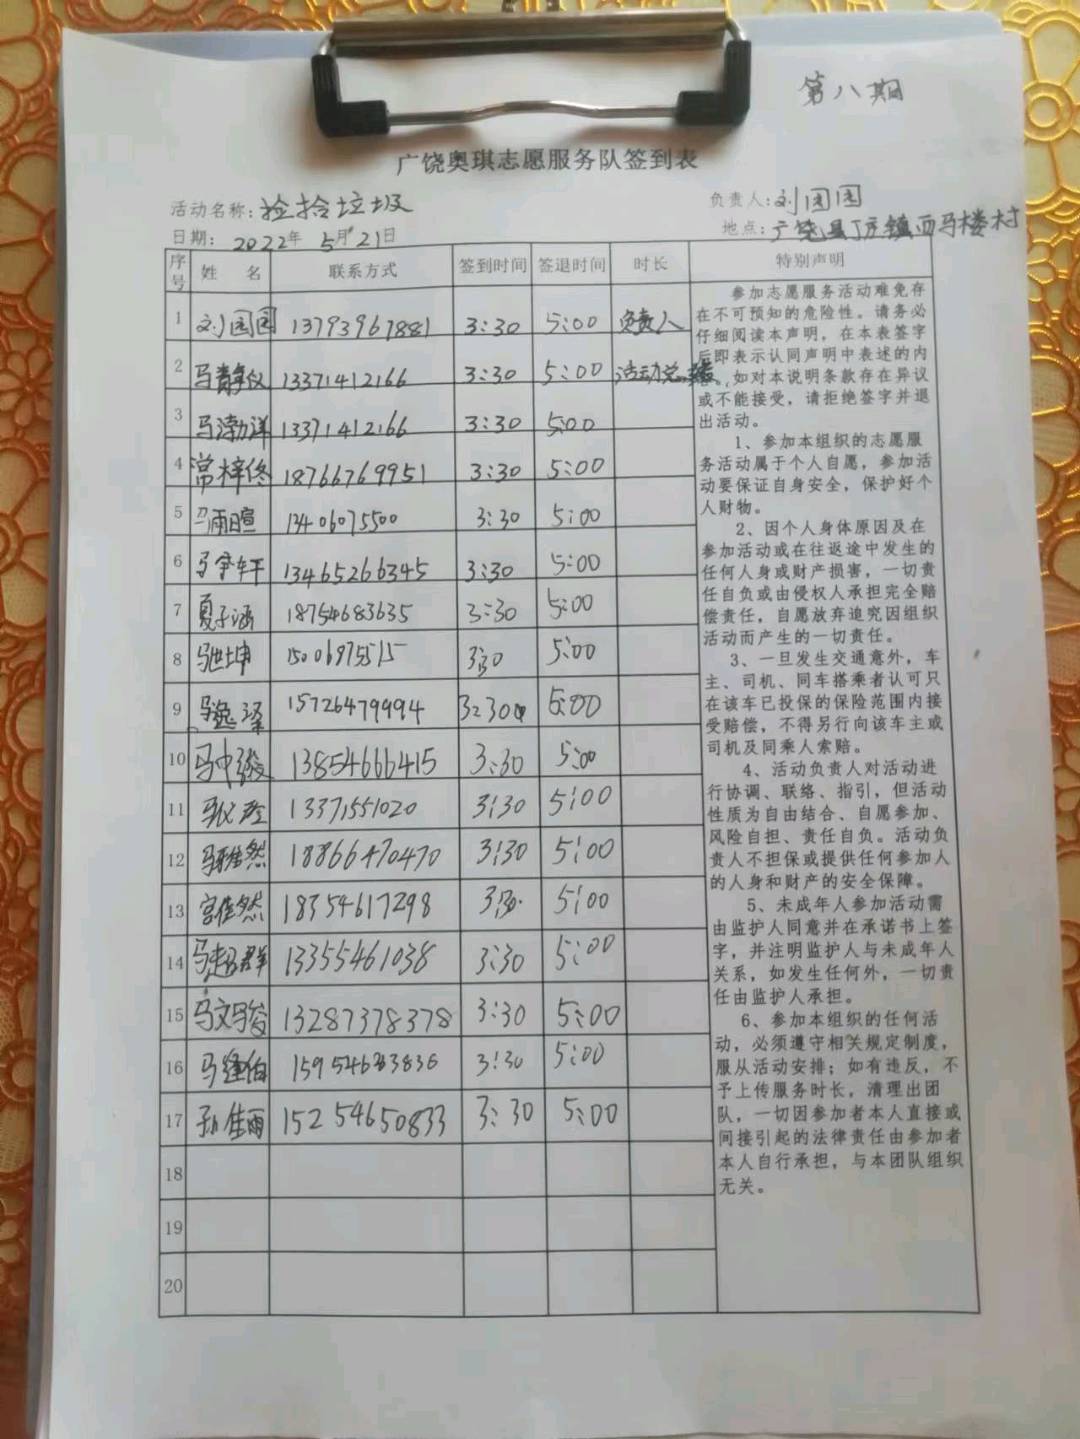 第八期
广饶奥琪志愿服务队签到表
活动名称：捡拾垃圾 负责人：刘园园
日期：2022年5月21日 地点：广饶县丁庄镇西马楼村
序号 姓 名 联系方式 签到时间 签退时间 时长 特别声明
1 刘园园 13793967881 3:30 5:00 负责人
2 马静仪 13371412166 3:30 5:00 活动总
3 马渤洋 13371412166 3:30 5:00
4 常梓佟 18766769951 3:30 5:00
5 雨暄 13406075500 3:30 5:00
6 马宇轩 13465266345 3:30 5:00
7 夏子涵 18754683635 3:30 5:00
8 坤 15006975515 3:30 5:00
9 马逸泽 15726479994 3:30 5:00
10 马中骏 13854666415 3:30 5:00
11 13371551020 3:30 5:00
12 马雅然 18866470470 3:30 5:00
13 宫佳然 18354617298 3:30 5:00
14 马超群 13355461038 3:30 5:00
15 马文骏 13287378378 3:30 5:00
16 马 伯 3:30 5:00
17 孙佳雨 15254650833 3:30 5:00
18
19
20
参加志愿服务活动难免存
在不可预知的危险性。请务必
仔细阅读本声明，在本表签字
后即表示认同声明中表述的内
容。如对本说明条款存在异议
或不能接受，请拒绝签字并退
出活动。
1、参加本组织的志愿服
务活动属于个人自愿，参加活
动要保证自身安全，保护好个
人财物。
2、因个人身体原因及在
参加活动或在往返途中发生的
任何人身或财产损害，一切责
任自负或由侵权人承担完全赔
偿责任，自愿放弃追究因组织
活动而产生的一切责任。
3、一旦发生交通意外，车
主、司机、同车搭乘者认可只
在该车已投保的保险范围内接
受赔偿，不得另行向该车主或
司机及同乘人索赔。
4、活动负责人对活动进
行协调、联络、指引，但活动
性质为自由结合、自愿参加、
风险自担、责任自负。活动负
责人不担保或提供任何参加人
的人身和财产的安全保障。
5、未成年人参加活动需
由监护人同意并在承诺书上签
字，并注明监护人与未成年人
关系，如发生任何外，一切责
任由监护人承担。
6、参加本组织的任何活
动，必须遵守相关规定制度，
服从活动安排；如有违反，不
予上传服务时长，清理出团
队，一切因参加者本人直接或
间接引起的法律责任由参加者
本人自行承担，与本团队组织
无关。